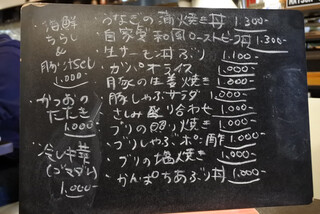 海鮮
ちらし
&
豚汁セット
1.000-
かつおの
たたき
1.000-
冷し中華
(ゴマダレ)
1.000-
うなぎの蒲焼き丼 1.300-
自家製和風ローストビーフ丼 1.300-
・生サーモン丼 1.100-
・ガパオライス 1.000-
・豚の生姜焼き 1.000-
・豚しゃぶサラダ 1.000-
・さしみ盛り合わせ 1.000-
・ブリの照り焼き 1.000-
・ブリしゃぶポン酢 1.000-
・ブリの塩焼き 1.000-
・かんぱちあぶり丼 1.000-